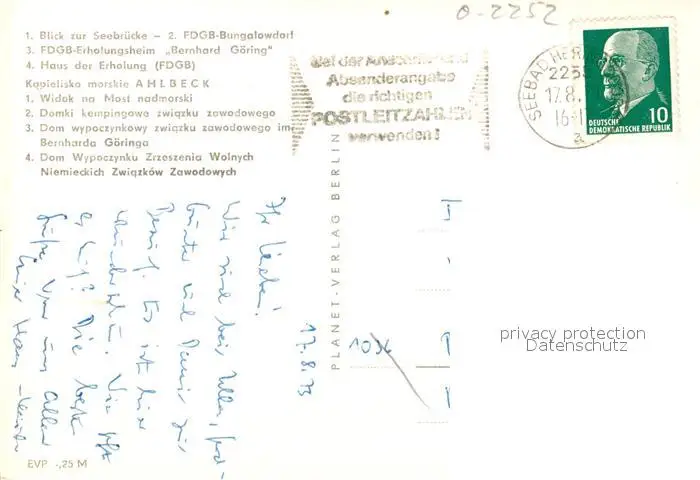 0-2252
1. Blick zur Seebrücke – 2. FDGB-Bungalowdorf
3. FDGB-Erholungsheim „Bernhard Göring"
4. Haus der Erholung (FDGB)
Kąpielisko morskie AHLBECK
1. Widok na Most nadmorski
2. Domki kempingowe związku zawodowego
3. Dom wypoczynkowy związku zawodowego im.
Bernharda Göringa
4. Dom Wypoczynku Zrzeszenia Wolnych
Niemieckich Związków Zawodowych
Bei der Anschrift und
Absenderangabe
die richtigen
POSTLEITZAHLEN
verwenden!
SEEBAD HER
225
17.8.
16-1
a
10
DEUTSCHE
DEMOKRATISCHE REPUBLIK
17.8.73
Ihr Lieben!
Wir sind bei Ulla,
Günter und
Es ist hier
wunderschön. Wie
es Euch? Die besten
Grüße von uns allen
PLANET-VERLAG BERLIN
privacy protection
Datenschutz
EVP -,25 M